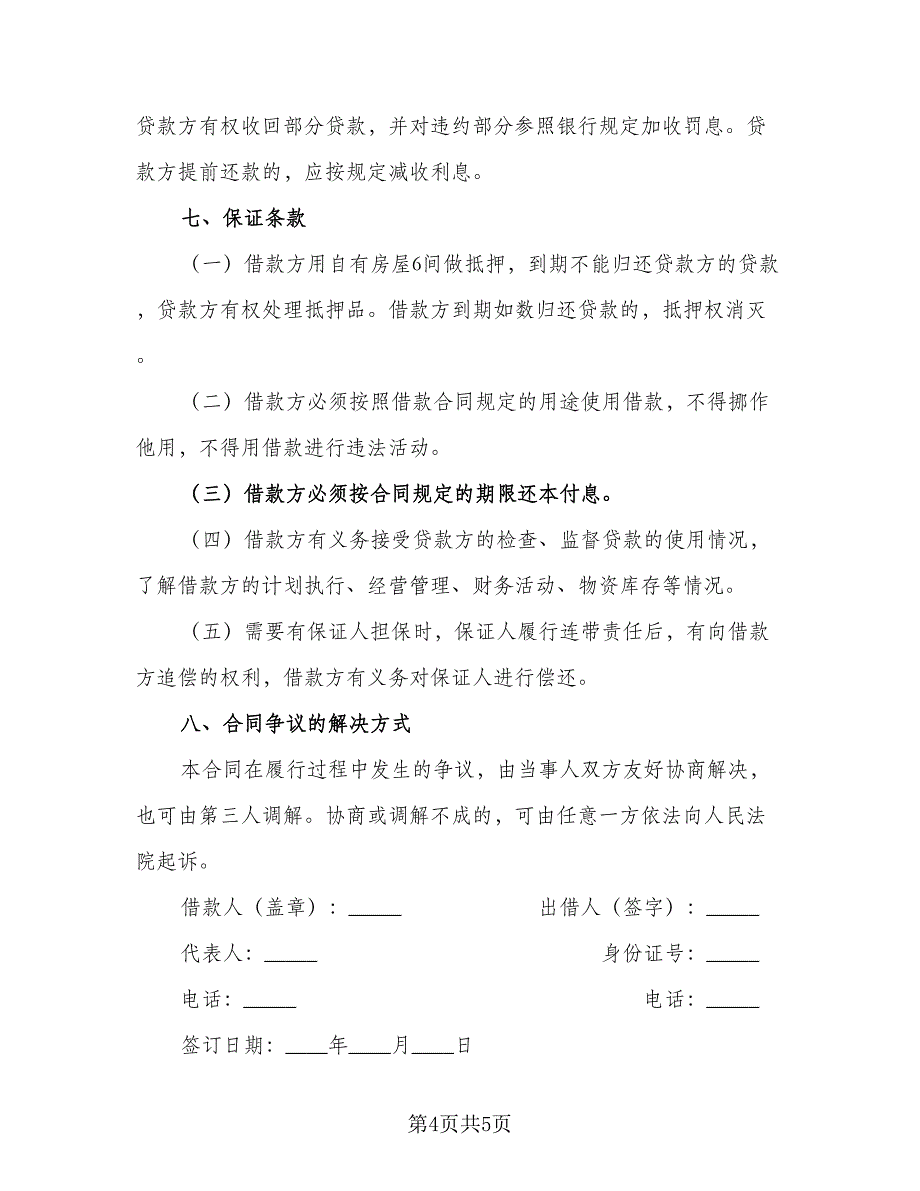 贷款方有权收回部分贷款，并对违约部分参照银行规定加收罚息。贷
款方提前还款的，应按规定减收利息。
七、保证条款
（一）借款方用自有房屋6间做抵押，到期不能归还贷款方的贷款
，贷款方有权处理抵押品。借款方到期如数归还贷款的，抵押权消灭
。
（二）借款方必须按照借款合同规定的用途使用借款，不得挪作
他用，不得用借款进行违法活动。
（三）借款方必须按合同规定的期限还本付息。
（四）借款方有义务接受贷款方的检查、监督贷款的使用情况，
了解借款方的计划执行、经营管理、财务活动、物资库存等情况。
（五）需要有保证人担保时，保证人履行连带责任后，有向借款
方追偿的权利，借款方有义务对保证人进行偿还。
八、合同争议的解决方式
本合同在履行过程中发生的争议，由当事人双方友好协商解决，
也可由第三人调解。协商或调解不成的，可由任意一方依法向人民法
院起诉。
借款人（盖章）：_____ 出借人（签字）：_____
代表人：_____ 身份证号：_____
电话：_____ 电话：_____
签订日期：____年____月____日
第4页共5页